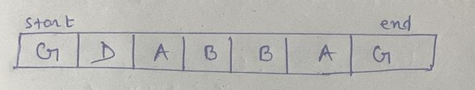 start end
G D A B B A G